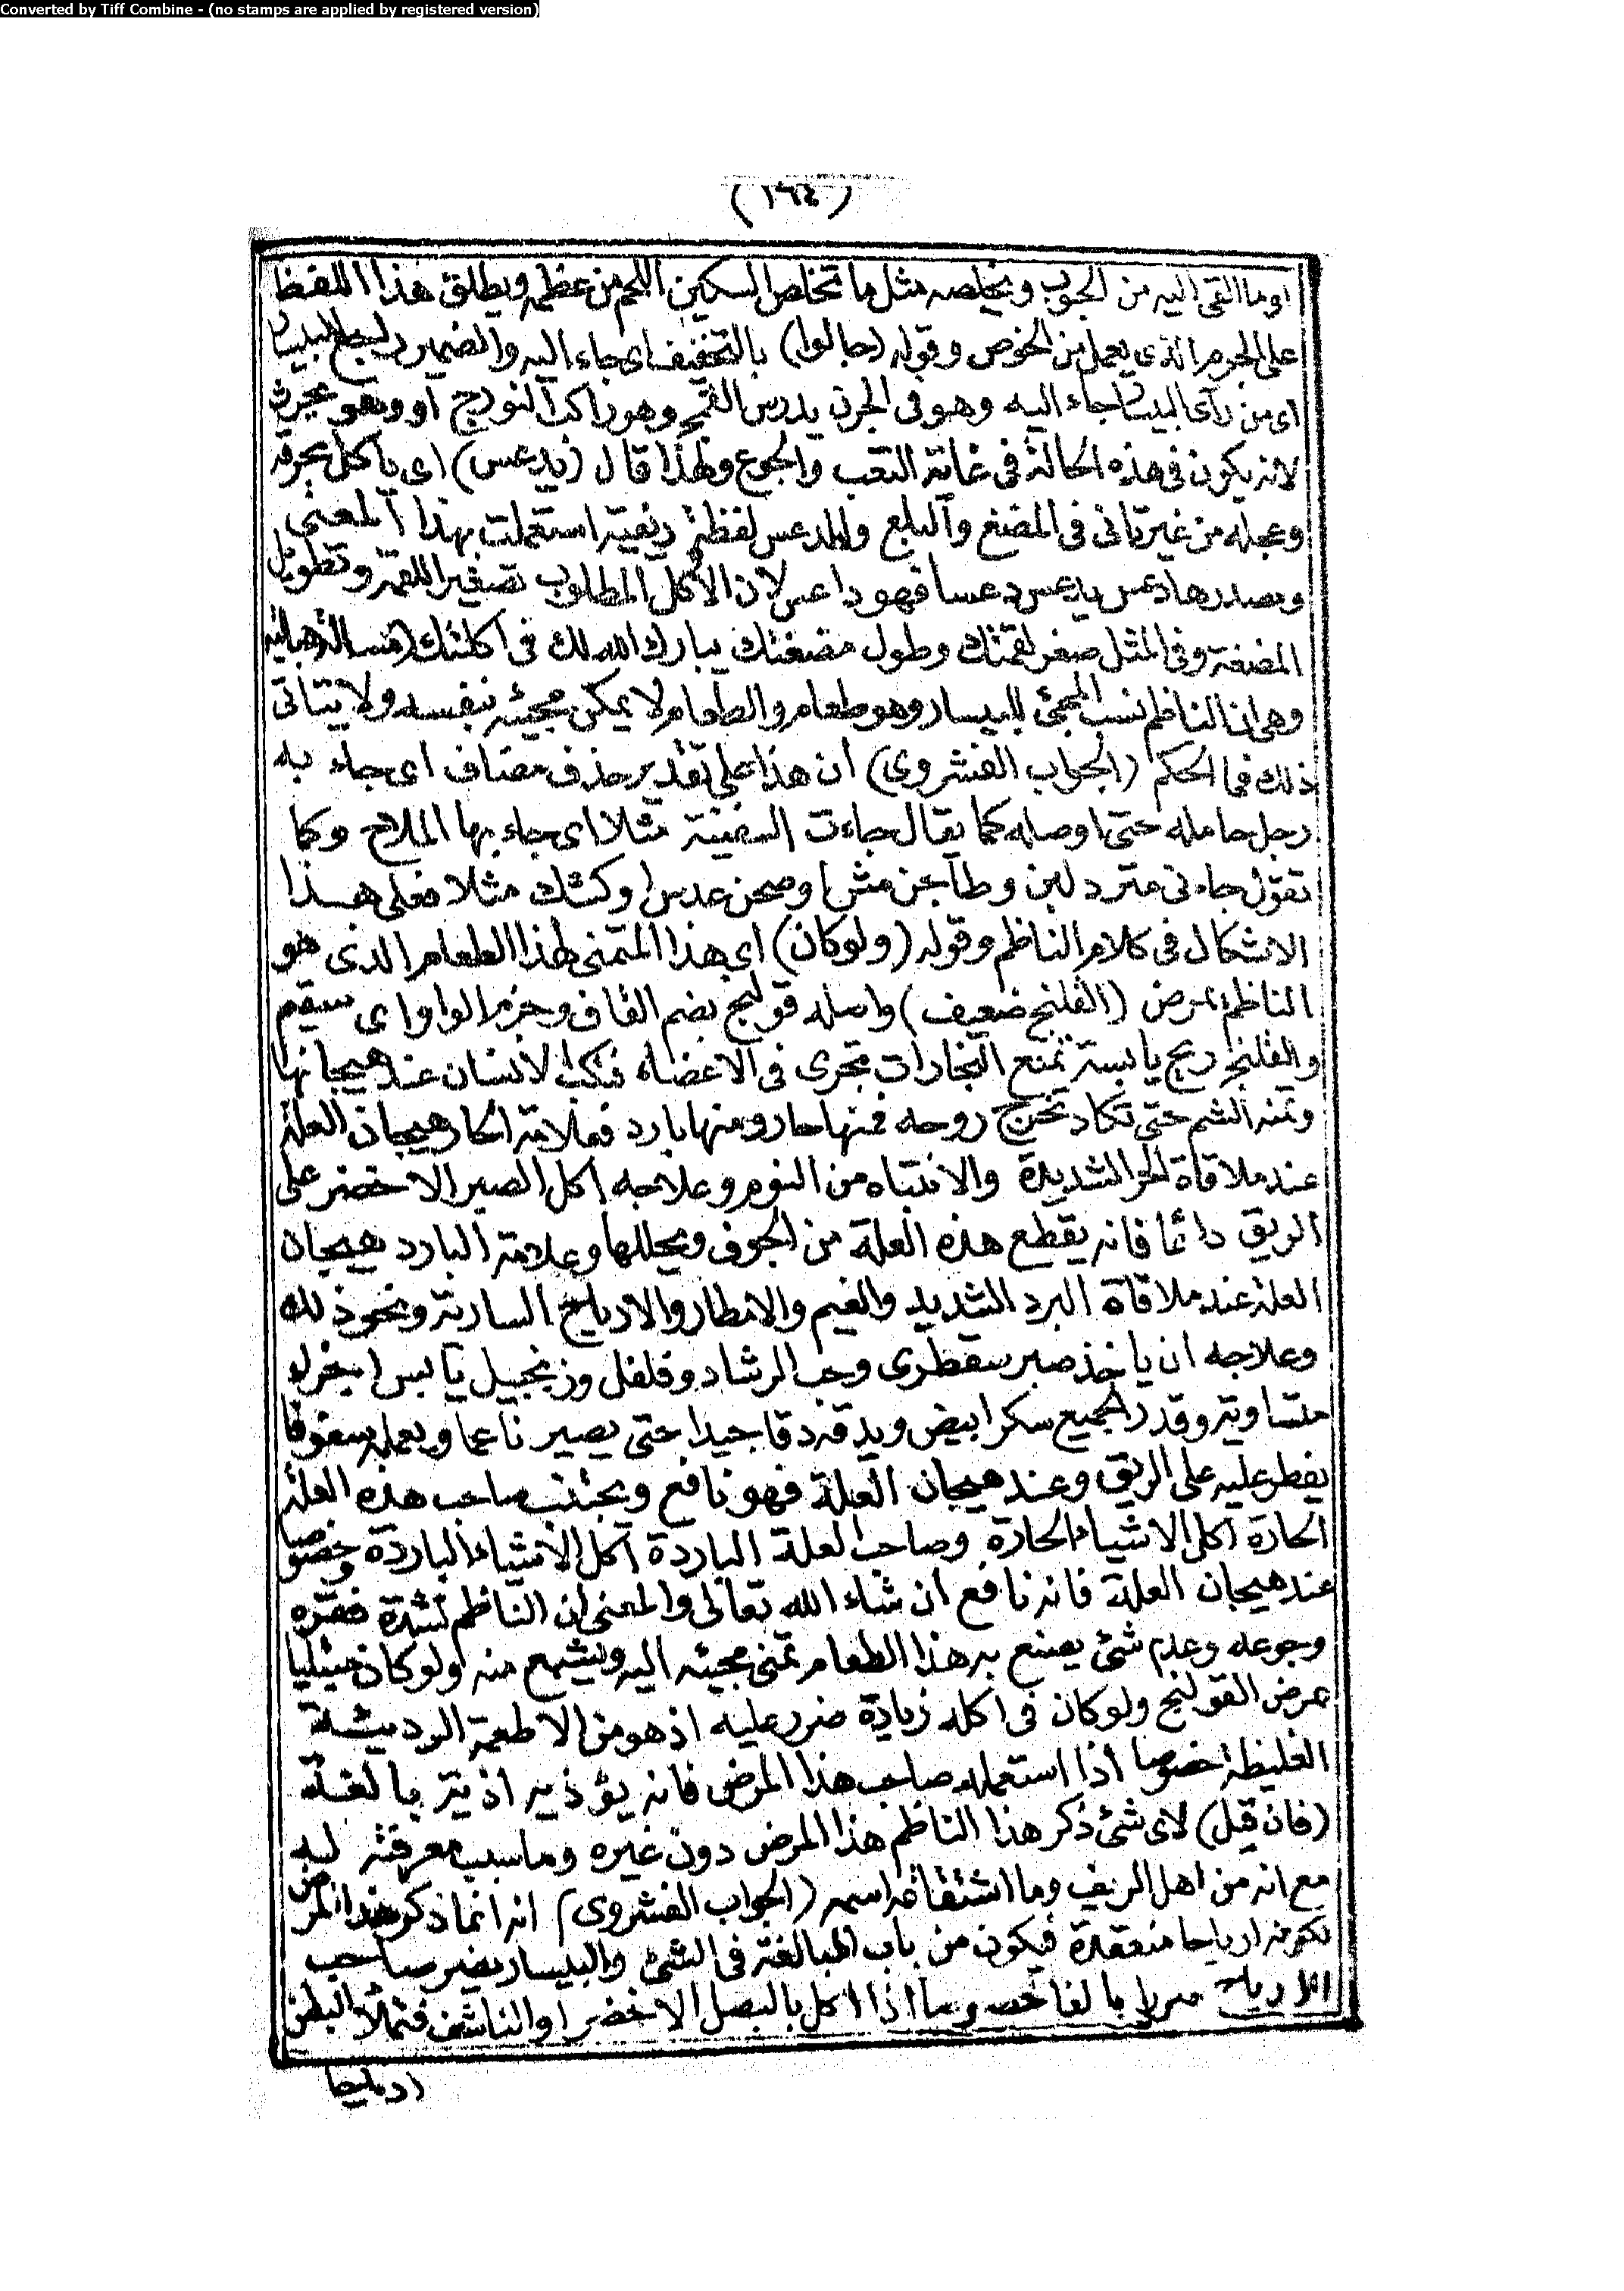 Converted by Tiff Combine - (no stamps are applied by registered version)
(١٦٤)
او ما القى اليه من الحبوب ويخلصه مثل ما تخلص السكين اللحم من عظمه ويطلق هذا اللفظ
على الجوم الذى يعمل من الخوص وقوله (جالوا) بالتخفيف اى جاء اليه والضمير راجع للبيسار
اى من رأى البيسار جاء اليه وهو فى الجرن يدرس القمح وهو راكب النورج او وهو يحرث
لانه يكون فى هذه الحالة فى غاية التعب والجوع ولهذا قال (يدعس) اى ياكل بحرقة
وعجله من غير تانى فى المضغ والبلع والدعس لفظة ريفية استعملت بهذا المعنى
ومصدرها دعس يدعس دعسا فهو داعس لان الأكل المطلوب تصغير اللقمة وتطويل
المضغة وفى المثل صغر لقمتك وطول مضغتك يبارك الله لك فى اكلتك
وهى ان الناظم نسب المجئ للبيسار وهو طعام والطعام لا يمكن مجيئه بنفسه ولا يتاتى
ذلك فما الحكم (الجواب الفشروى) ان هذا على تقدير حذف مضاف اى جاء به
رجل حامله حتى اوصله كما يقال جاءت السفينة مثلا اى جاء بها الملاح وكما
تقول جاءنى مترد لبن وطاجن مش او صحن عدس او كشك مثلا فعلى هذا
الاشكال فى كلام الناظم وقوله (ولو كان) اى هذا المتمنى لهذا الطعام الذى هو
الناظم بمرض (القلنج ضعيف) واصله قولنج بضم القاف وجزم الواو اى سقيم
والقلنج ريح يابسة تمنع البخارات تجرى فى الاعضاء فتكبت الانسان عند هيجانها
وتمنه الشم حتى تكاد تخرج روحه فمنها حار ومنها بارد فعلامة الحار هيجان العلة
عند ملاقاة الحر الشديدة والانتباه من النوم وعلاجه اكل الصبر الاخضر على
الريق دائما فانه يقطع هذه العلة من الجوف ويحللها وعلامة البارد هيجان
العلة عند ملاقاة البرد الشديد والغيم والامطار والارياح السارية ونحو ذلك
وعلاجه ان ياخذ صبر سقطرى وحب الرشاد وفلفل وزنجبيل يابس اجزاء
متساوية وقدر الجميع سكر ابيض ويدقه دقا جيدا حتى يصير ناعما ويعمله سفوفا
يفطر عليه على الريق وعند هيجان العلة فهو نافع ويجتنب صاحب هذه العلة
الحارة اكل الاشياء الحارة وصاحب العلة الباردة اكل الاشياء الباردة وخصوصا
عند هيجان العلة فانه نافع ان شاء الله تعالى والمعنى ان الناظم لشدة فقره
وجوعه وعدم شئ يصنع به هذا الطعام تمنى مجيئه اليه ويشبع منه ولو كان مبتليا
بمرض القولنج ولو كان فى اكله زيادة ضرر عليه اذ هو من الاطعمة الرديئة
الغليظة خصوصا اذا استعمله صاحب هذا المرض فانه يؤذيه اذية بالغة
(فان قيل) لاى شئ ذكر هذا الناظم هذا المرض دون غيره وما سبب معرفته له
مع انه من اهل الريف وما اشتقاق اسمه (الجواب الفشروى) انه انما ذكر هذا المرض
لكونه ارياحا منعقدة فيكون من باب المبالغة فى الشئ والبيسار يضر صاحب
الارياح ضررا بالغا خصوصا اذا اكل بالبصل الاخضر او الناشف فتملأ البطن